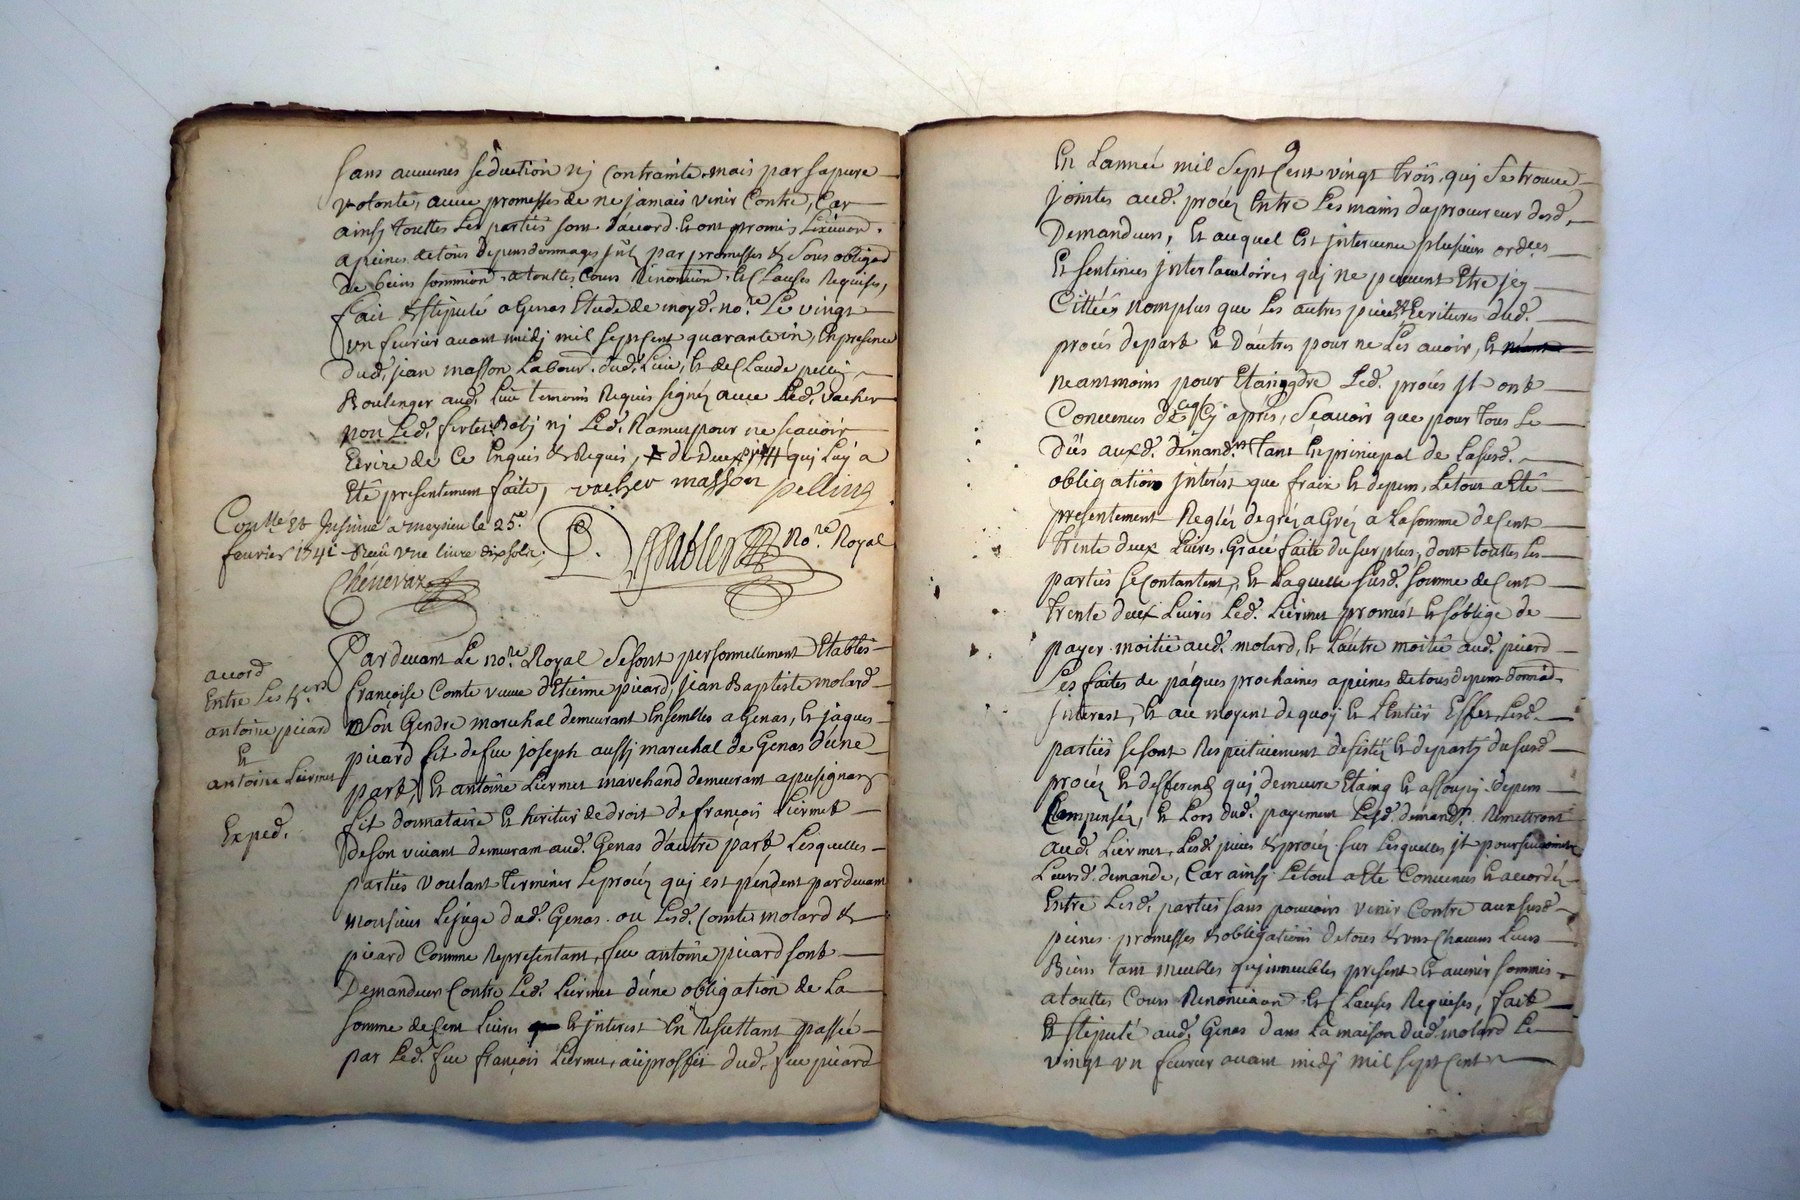 sans aucunes séduction nj Contrainte, mais par sa pure
volonté, avec promesses de ne jamais venir Contre, Car
ainsj touttes les parties sont d'acord Et ont promis
a peines de tous depens dommages par promesses & sous
de biens sommission a touttes Cours Renontion Et Clauses Requises,
fait & stipulé a Genas Etude de moyd. no.re Le vingt
un fevrier avant midj mil sept cent quarante un, En presence
dud. jean masson Labour. dud. Lieu, Et de Claude pellin
Boulenger aud. Lieu temoins Requis signéz avec Led. vacher
non Led. nj Led. Ramus pour ne scavoir
Ecrire de Ce Enquis & Requis, quj Luy a
Eté presentement faite, vacher masson pelling
Con.llé Et Insinué a meysieu le 25.e
fevrier 1741 Receu une livre dix sols. No.re Royal
Chénevaz
Pardevant Le no.re Royal Se sont personnellement Etablis
accord
Entre Les
antoine picard
Et
antoine Liermet
Exped.
françoise Comte veuve d'Etienne picard, jean Baptiste molard
son Gendre marechal demeurant Ensembles a Genas, Et jaques
picard fit de feu joseph aussj marechal de Genas d'une
part, Et antoine Liermet marchand demeurant a pusignan
fit donnataire Et heritier de droit de françois Liermet
de son vivant demeurant aud. Genas d'autre part Lesquelles
parties voulant terminer Le procéz quj est pendent pardevant
monsieur Le juge dud. Genas. ou Lesd. Comte molard &
picard Comme Representant, feu antoine picard sont
Demandeurs Contre Led. Liermet d'une obligation de La
somme de Cent Livres Et jnterest En Resultant passée
par Led. feu françois Liermet, au proffit dud. feu picard
9
En Lannée mil sept Cent vingt trois. quj se trouve
jointes aud. procéz Entre Les mains du procureur desd.
Demandeurs, Et auquel Est jntervenue plusieurs ord.ces
Et sentences jnterlocutoires quj ne peuvent Etre jcy
Cittées nomplus que Les autres pieces & Ecritures dud.
procés de part Et d'autres pour ne Les avoir, Et
neantmoins pour Etaingdre Led. procés jl ont
Convenus de Ce quj aprés, scavoir que pour tous Le
dus auxd. demand.rs tant En principal de La susd.
obligation jnterest que fraix Et depens, Le tout a Eté
presentement Regléz de gréz a Gréz a La somme de Cent
trente deux Livres. Grace faite du surplus, dont touttes Les
parties se Contantent, Et Laquelle susd. somme de Cent
trente deux Livres Led. Liermet promest Et s'oblige de
payer moitié aud. molard, Et L'autre moitié aud. picard
Les faites de pâques prochaines a peines de tous depens dommag.
jnterest, Et au moyent de quoy Et L'Entier Effet, Lesd.
parties se sont Respectivement desistéz Et departj du susd.
procéz Et differend quj demeure Etaing Et assoupy. depens
Compenséz, Et Lors dud. payement Lesd. demand.rs Remettront
aud. Liermet, Lesd. pieces & procéz sur Lesquelles jl poursuivoient
Leursd. demande, Car ainsj Le tout a Eté Convenus Et accordéz
Entre Lesd. parties sans pouvoirs venir Contre aux susd.
peines. promesses & obligations de tous & uns Chacuns Leurs
Biens tant meubles qujmmeubles present Et avenir sommis
a touttes Cours Renonciaon Et Clauses Requises, fait
Et stipulé aud. Genas dans La maison dud. molard Le
vingt un fevrier avant midj mil sept Cent